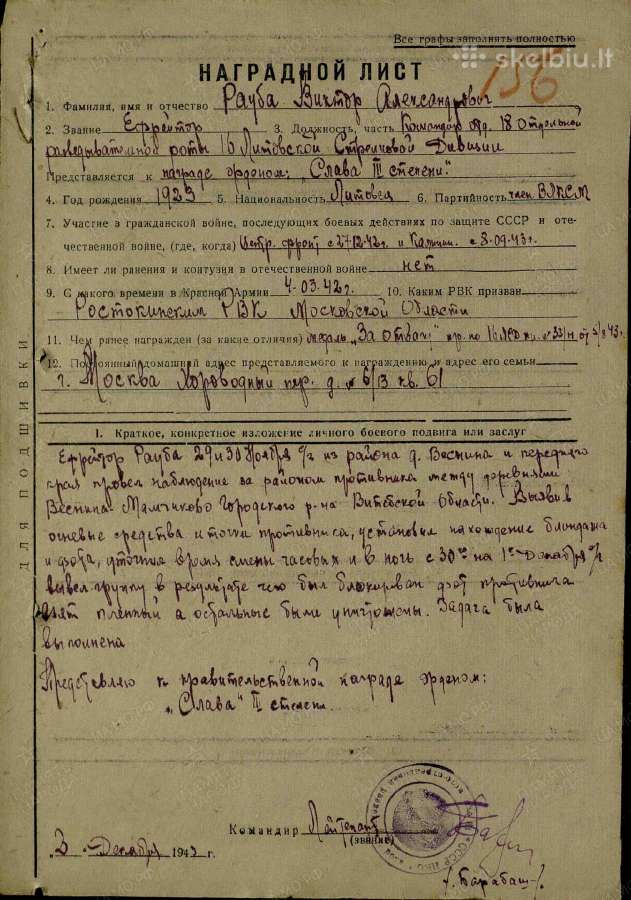 Все графы заполнять полностью
skelbiu.lt
НАГРАДНОЙ ЛИСТ
156
1. Фамилия, имя и отчество Рауба Виктор Александрович
2. Звание Ефрейтор 3. Должность, часть Командир отд. 18 Отдельной
разведывательной роты 16 Литовской Стрелковой Дивизии
Представляется к награде орденом: „Слава III степени"
4. Год рождения 1923 5. Национальность Литовец 6. Партийность член ВЛКСМ
7. Участие в гражданской войне, последующих боевых действиях по защите СССР и оте-
чественной войне, (где, когда) Центр. фронт с 27.12.42г. и Калинин. с 8.09.43г.
8. Имеет ли ранения и контузия в отечественной войне нет
9. С какого времени в Красной Армии 4.03.42г. 10. Каким РВК призван
Ростокинским РВК Московской Области
11. Чем ранее награжден (за какие отличия) медаль „За отвагу" пр. по 16 ЛСД
12. Постоянный домашний адрес представляемого к награждению и адрес его семьи
г. Москва Хороводный пер. д. № 6/13 кв. 61
ДЛЯ ПОДШИВКИ
I. Краткое, конкретное изложение личного боевого подвига или заслуг
Ефрейтор Рауба 29 и 30 Ноября с/г из района д. Веснина и переднего
края провел наблюдение за районом противника между деревнями
Веснина - Городского р-на Витебской Области. Выявив
огневые средства и точки противника, установил нахождение блиндажа
и дзота, уточнил время смены часовых и в ночь с 30го на 1е Декабря с/г
вывел группу в результате чего был блокирован дзот противника
взят пленный а остальные были уничтожены. Задача была
выполнена
Представляю к правительственной награде Орденом:
„Слава" III степени.
Командир Лейтенант
(звание)
3 Декабря 1943 г.
/Барабаш/